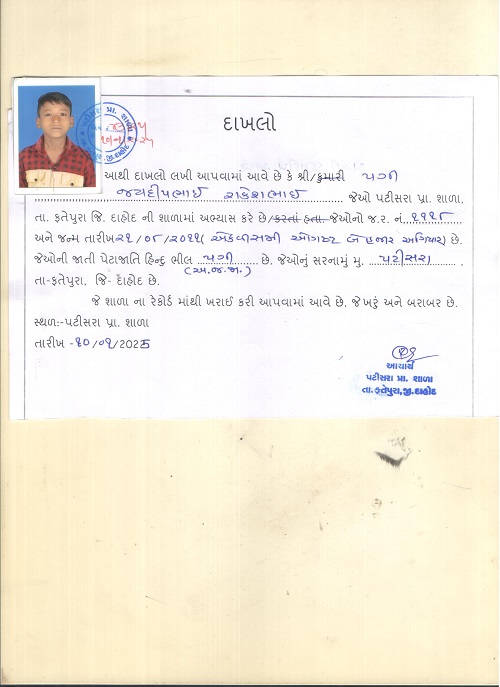 દાખલો
આથી દાખલો લખી આપવામાં આવે છે કે શ્રી/કુમારી પગી
જયદીપભાઈ રાકેશભાઈ જેઓ પટીસરા પ્રા. શાળા,
તા. ફતેપુરા જિ. દાહોદ ની શાળામાં અભ્યાસ કરે છે/કરતાં હતા. જેઓનો જ.ર. નં. ૧૧૧૬
અને જન્મ તારીખ ૨૧/૦૮/૨૦૧૧( એકવીસમી ઓગસ્ટ બે હજાર અગિયાર) છે.
જેઓની જાતી પેટાજાતિ હિન્દુ ભીલ પગી છે. જેઓનું સરનામું મુ. પટીસરા
(અ.જ.જા.)
તા-ફતેપુરા, જિ- દાહોદ છે.
જે શાળા ના રેકોર્ડ માંથી ખરાઈ કરી આપવામાં આવે છે. જે ખરું અને બરાબર છે.
સ્થળ:-પટીસરા પ્રા. શાળા
તારીખ -૧૦/૦૧/2025
આચાર્ય
પટીસરા પ્રા. શાળા
તા.ફતેપુરા,જી.દાહોદ